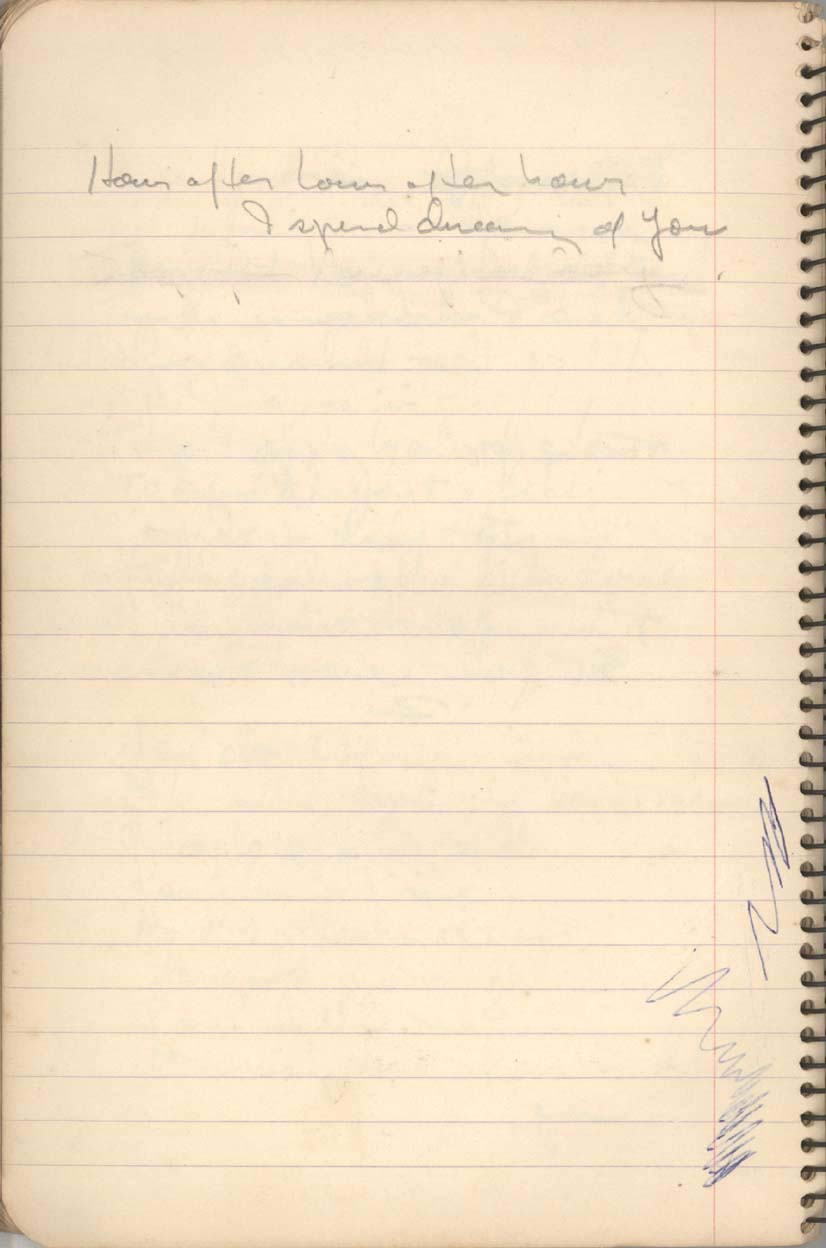 Hour after hour after hour
I spend dreaming of you